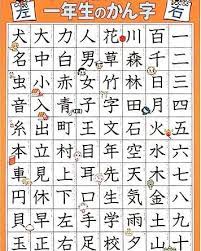 一年生のかん字
一二三四五六七八九十
百千日月火水木金土
川森林山雨空天気夕
花草竹田石文年生学校
人男女子王玉正口手足
力白赤青町村目耳上下
大中小入出立見休早
犬名虫音糸本車円貝